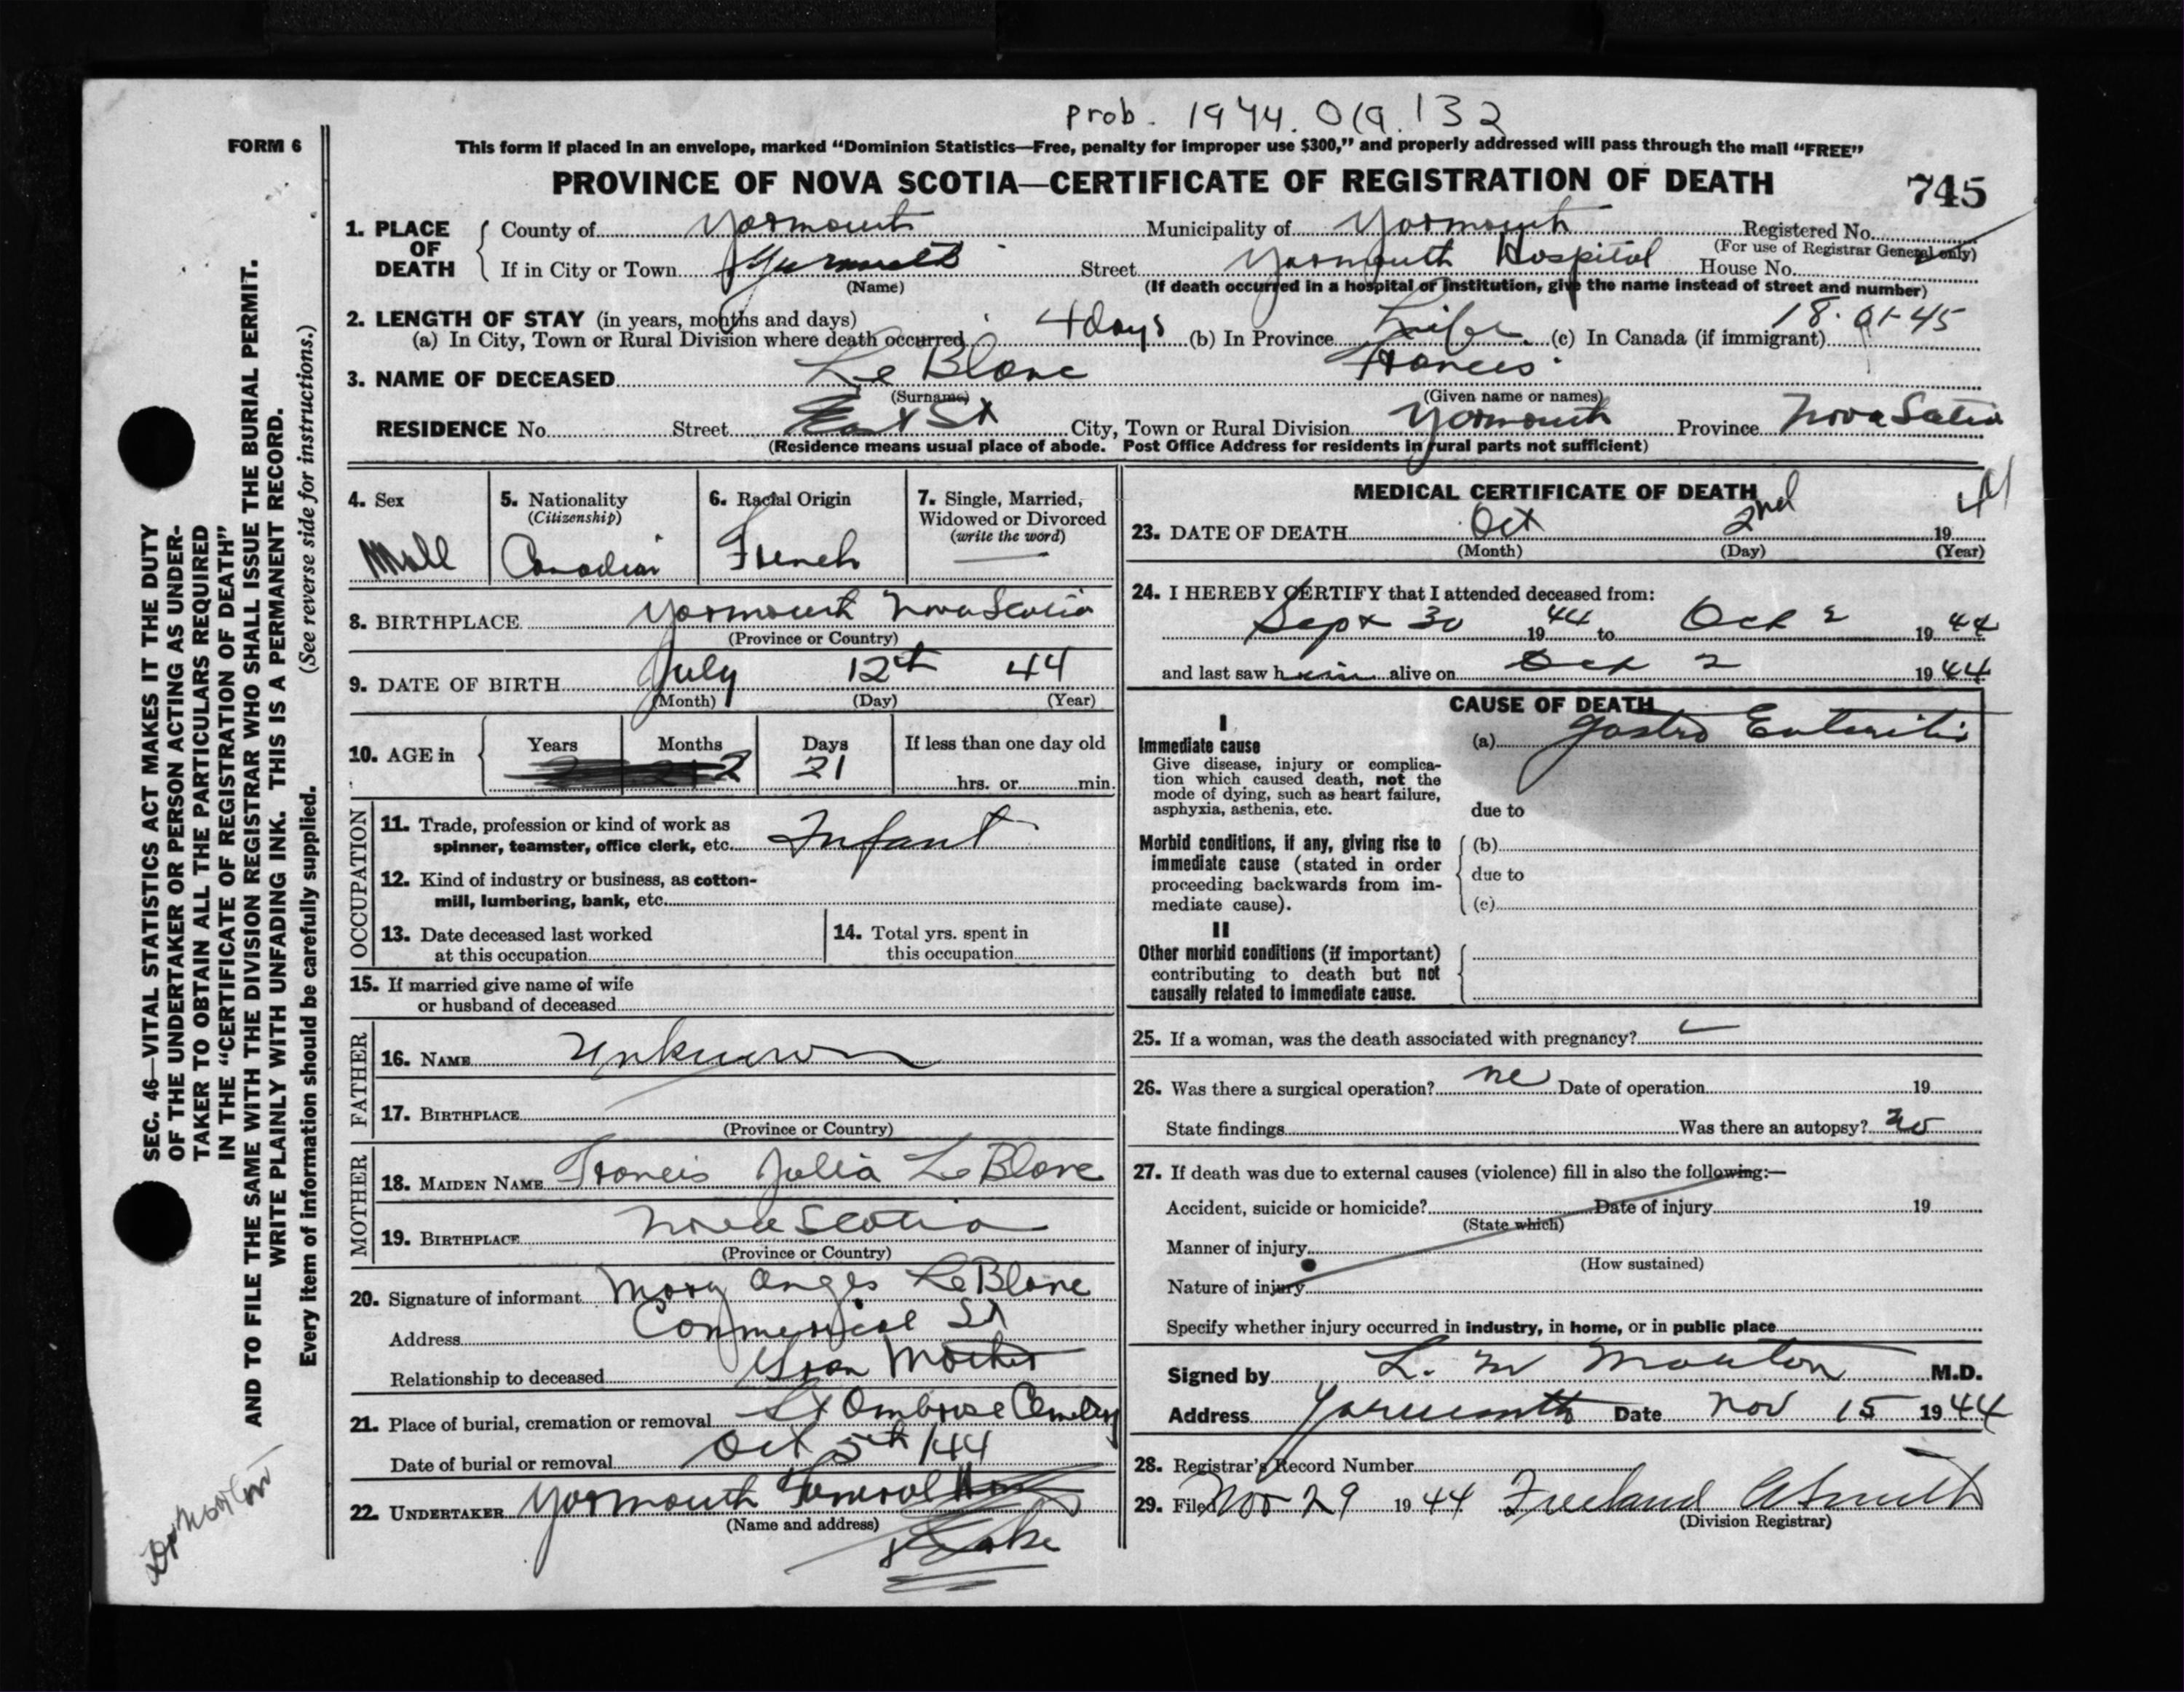 prob. 1944. 019. 132
This form if placed in an envelope, marked “Dominion Statistics—Free, penalty for improper use $300,” and properly addressed will pass through the mail “FREE”
FORM 6
PROVINCE OF NOVA SCOTIA—CERTIFICATE OF REGISTRATION OF DEATH
745
1. PLACE OF DEATH
County of Yarmouth Municipality of Yarmouth Registered No.
(For use of Registrar General only)
If in City or Town Yarmouth Street Yarmouth Hospital House No.
(Name) (If death occurred in a hospital or institution, give the name instead of street and number)
2. LENGTH OF STAY (in years, months and days) 18·01-45
(a) In City, Town or Rural Division where death occurred 4 days (b) In Province Life (c) In Canada (if immigrant)
3. NAME OF DECEASED Le Blanc Francis
(Surname) (Given name or names)
RESIDENCE No. Street East St City, Town or Rural Division Yarmouth Province Nova Scotia
(Residence means usual place of abode. Post Office Address for residents in rural parts not sufficient)
4. Sex
Mall
5. Nationality
(Citizenship)
Canadian
6. Racial Origin
French
7. Single, Married,
Widowed or Divorced
(write the word)
8. BIRTHPLACE Yarmouth Nova Scotia
(Province or Country)
9. DATE OF BIRTH July 12th 44
(Month) (Day) (Year)
10. AGE in
Years Months Days If less than one day old
2 21 hrs. or min.
OCCUPATION
11. Trade, profession or kind of work as
spinner, teamster, office clerk, etc. Infant
12. Kind of industry or business, as cotton-
mill, lumbering, bank, etc.
13. Date deceased last worked
at this occupation
14. Total yrs. spent in
this occupation
15. If married give name of wife
or husband of deceased
FATHER
16. NAME Unknown
17. BIRTHPLACE
(Province or Country)
MOTHER
18. MAIDEN NAME Francis Julia Le Blanc
19. BIRTHPLACE Nova Scotia
(Province or Country)
20. Signature of informant Mary Anges LeBlanc
Address Commerical St
Relationship to deceased Gran Mother
21. Place of burial, cremation or removal St Ambrose Cemetery
Date of burial or removal Oct 5th/44
22. UNDERTAKER Yarmouth Funeral Home
(Name and address)
MEDICAL CERTIFICATE OF DEATH
23. DATE OF DEATH Oct 2nd 19 44
(Month) (Day) (Year)
24. I HEREBY CERTIFY that I attended deceased from:
Sept 30 19 44 to Oct 2 19 44
and last saw him alive on Oct 2 19 44
CAUSE OF DEATH
I
Immediate cause
Give disease, injury or complica-
tion which caused death, not the
mode of dying, such as heart failure,
asphyxia, asthenia, etc.
(a) Gastro Enteritis
due to
Morbid conditions, if any, giving rise to
immediate cause (stated in order
proceeding backwards from im-
mediate cause).
(b)
due to
(c)
II
Other morbid conditions (if important)
contributing to death but not
causally related to immediate cause.
25. If a woman, was the death associated with pregnancy?
26. Was there a surgical operation? no Date of operation 19
State findings Was there an autopsy? no
27. If death was due to external causes (violence) fill in also the following:—
Accident, suicide or homicide? Date of injury 19
(State which)
Manner of injury
(How sustained)
Nature of injury
Specify whether injury occurred in industry, in home, or in public place
Signed by L. M Morton M.D.
Address Yarmouth Date Nov 15 19 44
28. Registrar's Record Number
29. Filed Nov 29 19 44 Freeland A Smith
(Division Registrar)
SEC. 46—VITAL STATISTICS ACT MAKES IT THE DUTY
OF THE UNDERTAKER OR PERSON ACTING AS UNDER-
TAKER TO OBTAIN ALL THE PARTICULARS REQUIRED
IN THE “CERTIFICATE OF REGISTRATION OF DEATH”
AND TO FILE THE SAME WITH THE DIVISION REGISTRAR WHO SHALL ISSUE THE BURIAL PERMIT.
WRITE PLAINLY WITH UNFADING INK. THIS IS A PERMANENT RECORD.
Every item of information should be carefully supplied. (See reverse side for instructions.)
Dr Morton